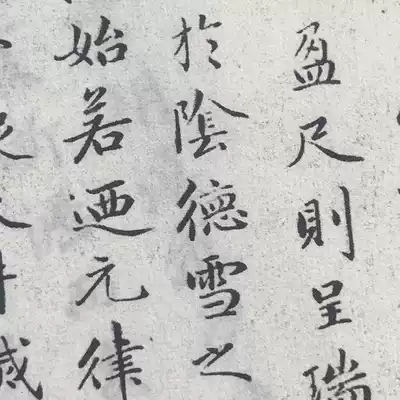 盈尺則呈瑞
於陰德雪之
始若迺元律